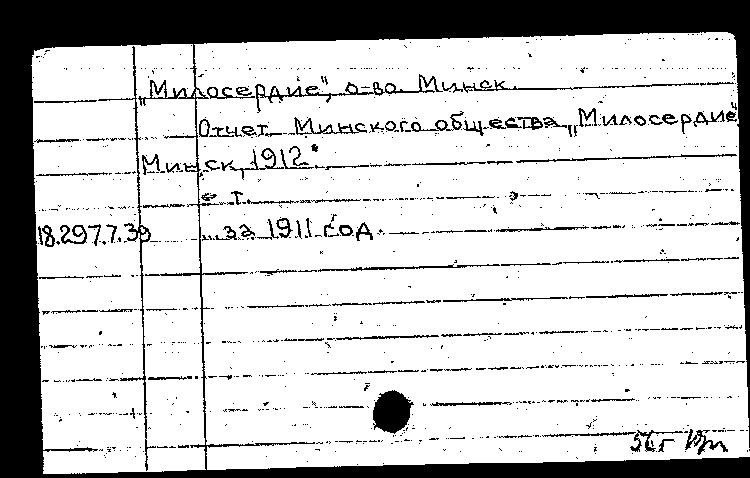 „Милосердие", о-во. Минск.
Отчет Минского общества „Милосердие"
Минск, 1912.
с т.
18.297.7.39 ...за 1911 год.
56г